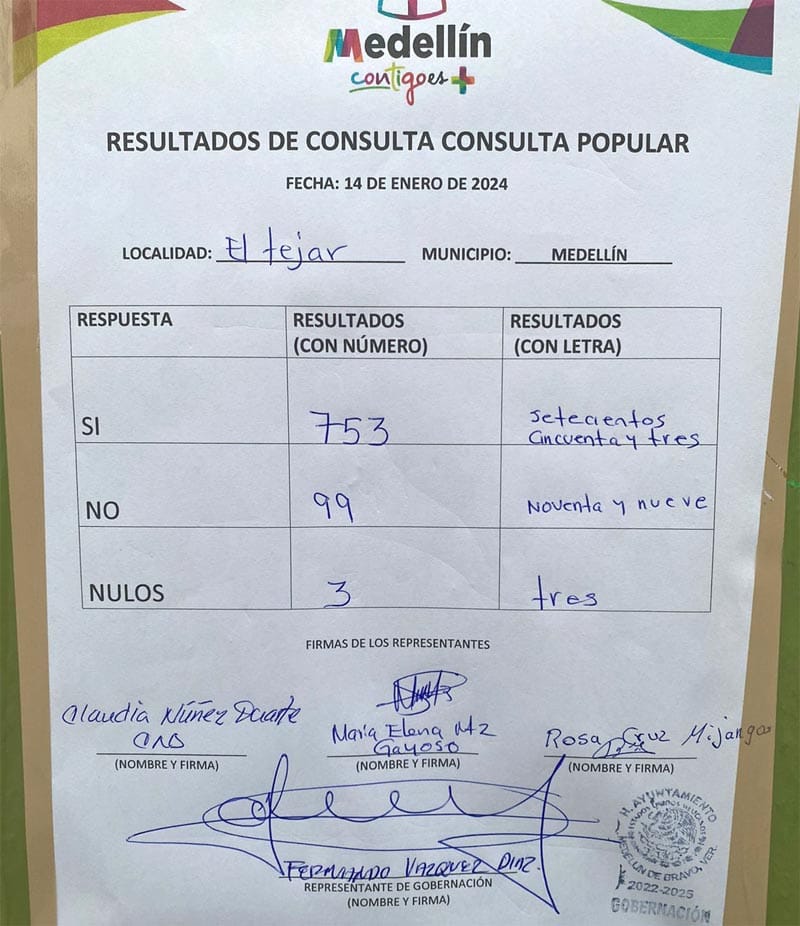 Medellín
contigo es +
RESULTADOS DE CONSULTA CONSULTA POPULAR
FECHA: 14 DE ENERO DE 2024
LOCALIDAD: El tejar MUNICIPIO: MEDELLÍN
RESPUESTA RESULTADOS (CON NÚMERO) RESULTADOS (CON LETRA)
SI 753 setecientos cincuenta y tres
NO 99 Noventa y nueve
NULOS 3 tres
FIRMAS DE LOS REPRESENTANTES
Claudia Núñez Duarte
(NOMBRE Y FIRMA)
María Elena Mtz
Gayoso
(NOMBRE Y FIRMA)
Rosa Cruz Mijangos
(NOMBRE Y FIRMA)
FERNANDO VAZQUEZ DIAZ.
REPRESENTANTE DE GOBERNACIÓN
(NOMBRE Y FIRMA)
H. AYUNTAMIENTO
ESTADOS UNIDOS MEXICANOS
MEDELLÍN DE BRAVO, VER.
2022-2025
GOBERNACIÓN